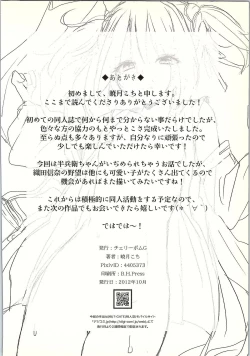 ◆あとがき◆
初めまして、暁月こちと申します。
ここまで読んでくださりありがとうございました！
初めての同人誌で何から何まで分からない事だらけでしたが、
色々な方の協力のもとやっとこさ完成いたしました。
至らぬ点も多々ありますが、自分なりに頑張ったので
少しでも楽しんでいただけたら幸いです！
今回は半兵衛ちゃんがいぢめられちゃうお話でしたが、
織田信奈の野望には他にも可愛い子がたくさん出てくるので
機会があればまた描いてみたいですね！
これからは積極的に同人活動をする予定なので、
また次の作品でもお会いできたら嬉しいです(*´∀｀)
ではでは～！
発行：チェリーボムG
著者：暁月こち
PixivID：4405373
印刷所：B.H.Press
発行日：2012年10月